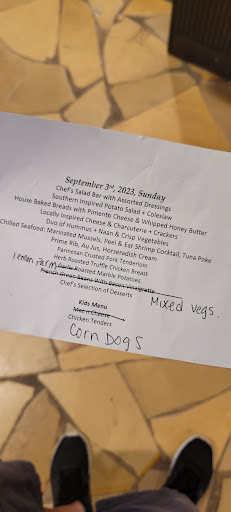 September 3rd, 2023, Sunday
Chef's Salad Bar with Assorted Dressings
Southern Inspired Potato Salad + Coleslaw
House Baked Breads with Pimento Cheese & Whipped Honey Butter
Locally Inspired Cheese & Charcuterie + Crackers
Duo of Hummus + Naan & Crisp Vegetables
Chilled Seafood: Marinated Mussels, Peel & Eat Shrimp Cocktail, Tuna Poke
Prime Rib, Au Jus, Horseradish Cream
Parmesan Crusted Pork Tenderloin
Herb Roasted Truffle Chicken Breast
Lemon Parm Garlic Roasted Marble Potatoes
French Green Beans With Bacon Vinaigrette Mixed Vegs.
Chef's Selection of Desserts
Kids Menu
Mac n Cheese
Chicken Tenders
Corn Dogs